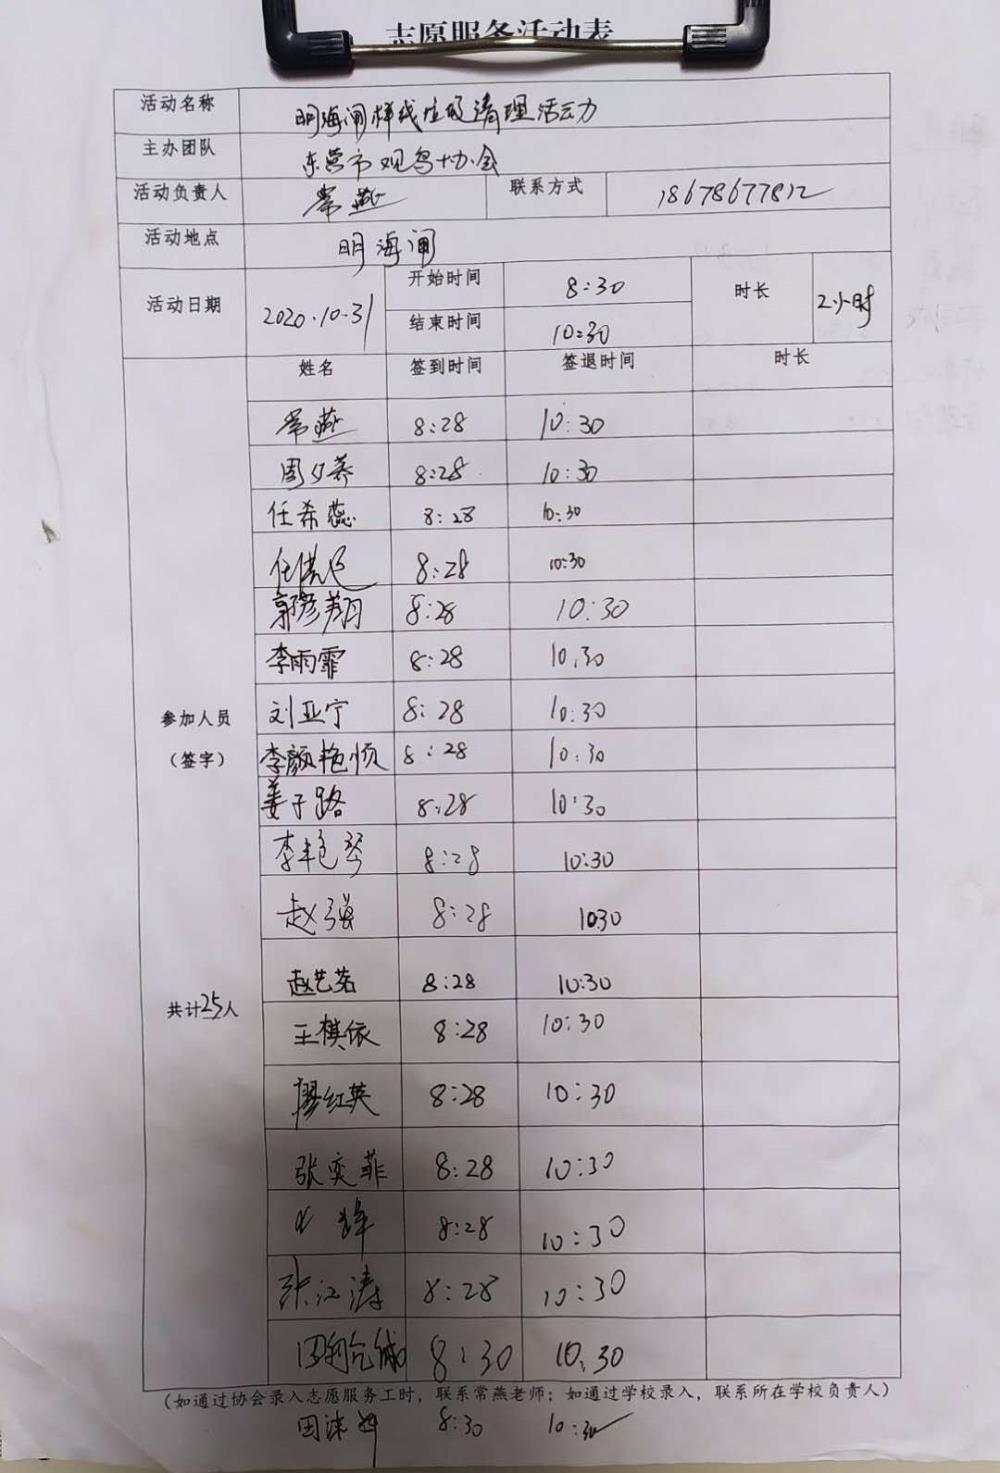 志愿服务活动表
活动名称 明海闸样线垃圾清理活动
主办团队 东营市观鸟协会
活动负责人 常燕 联系方式 18678677812
活动地点 明海闸
活动日期 2020.10.31 开始时间 8:30 时长 2小时
结束时间 10:30
姓名 签到时间 签退时间 时长
常燕 8:28 10:30
周夕荞 8:28 10:30
任希蕊 8:28 10:30
8:28 10:30
郭彦翔 8:28 10:30
李雨霏 8:28 10:30
刘亚宁 8:28 10:30
李颜艳顺 8:28 10:30
姜子路 8:28 10:30
李艳琴 8:28 10:30
赵强 8:28 10:30
赵艺茗 8:28 10:30
王棋依 8:28 10:30
廖红英 8:28 10:30
张奕菲 8:28 10:30
8:28 10:30
张江涛 8:28 10:30
8:30 10:30
参加人员
（签字）
共计25人
(如通过协会录入志愿服务工时，联系常燕老师；如通过学校录入，联系所在学校负责人)
8:30 10:30